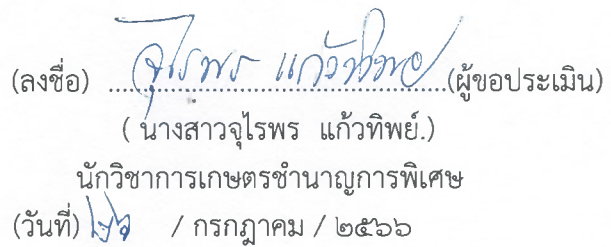 (ลงชื่อ) จุไรพร แก้วทิพย์ (ผู้ขอประเมิน)
( นางสาวจุไรพร แก้วทิพย์.)
นักวิชาการเกษตรชำนาญการพิเศษ
(วันที่) / กรกฎาคม / ๒๕๖๖